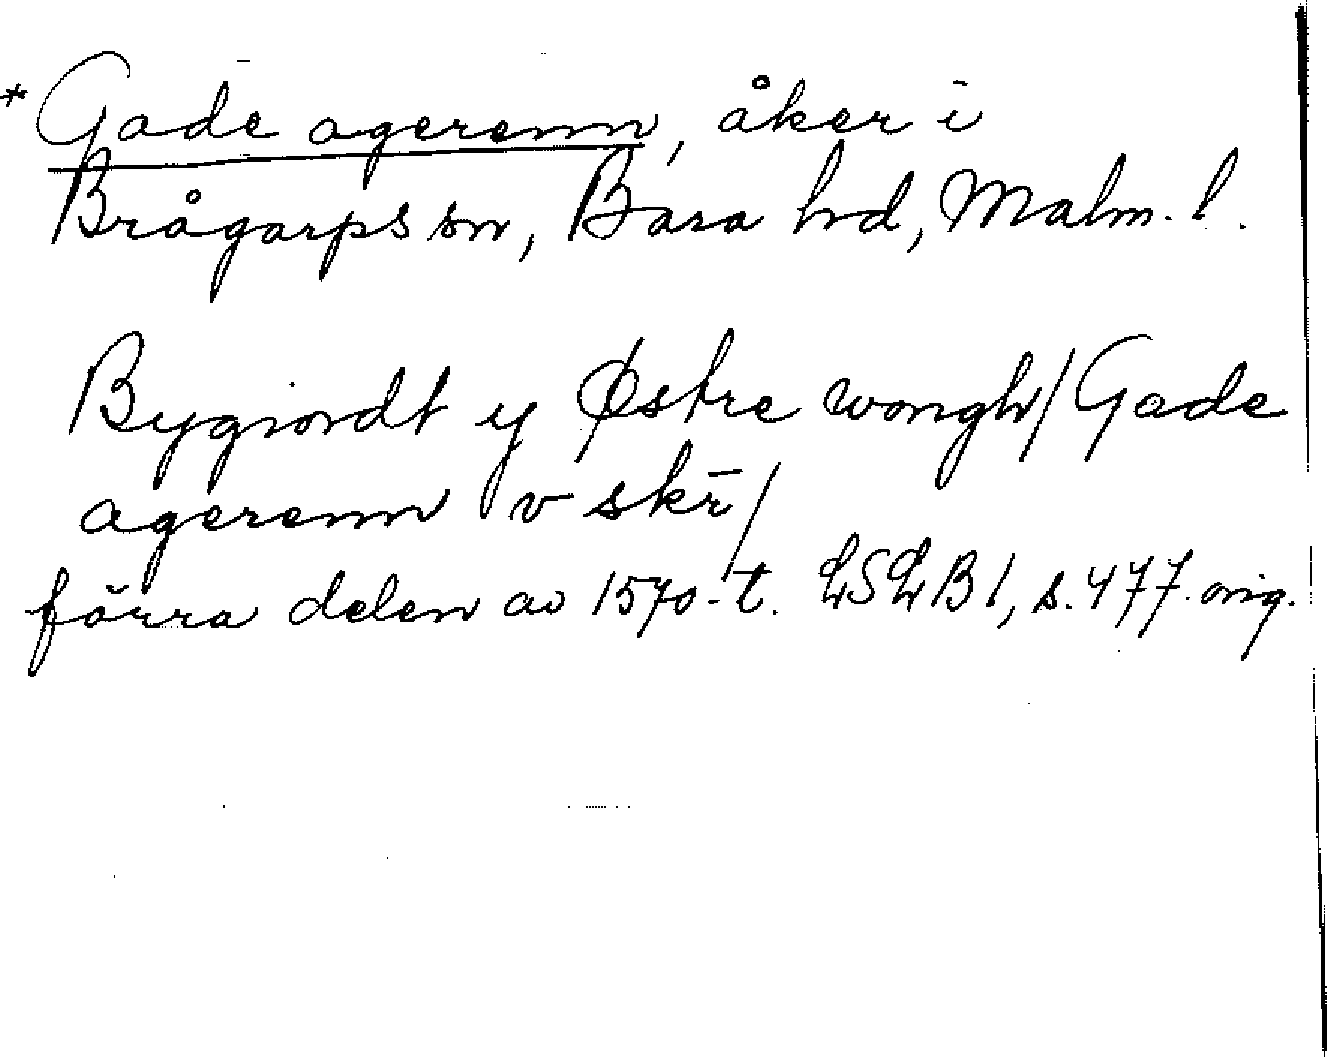 * Gade agerenn, åker i
Brågarps sn, Bara hd, Malm. l.
Bygiordt y Østre wongh/Gade
agerenn v skr̄/
förra delen av 1570-t. LSLB1, s. 477. orig.